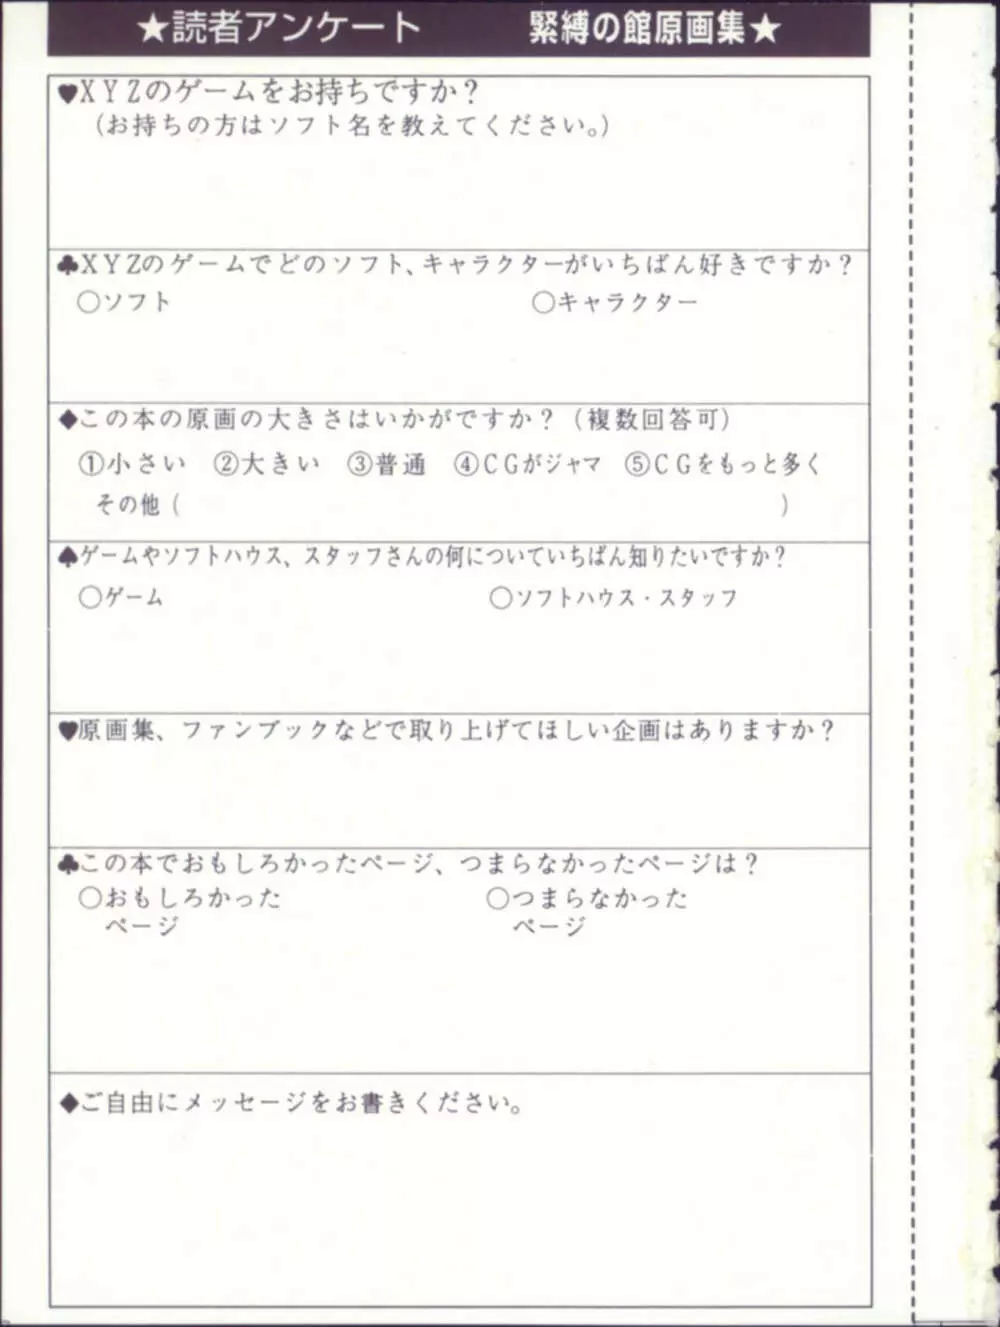 ★読者アンケート　緊縛の館原画集★
♥XYZのゲームをお持ちですか？
（お持ちの方はソフト名を教えてください。）
♣XYZのゲームでどのソフト、キャラクターがいちばん好きですか？
○ソフト　○キャラクター
◆この本の原画の大きさはいかがですか？（複数回答可）
①小さい　②大きい　③普通　④CGがジャマ　⑤CGをもっと多く
その他（　）
♠ゲームやソフトハウス、スタッフさんの何についていちばん知りたいですか？
○ゲーム　○ソフトハウス・スタッフ
♥原画集、ファンブックなどで取り上げてほしい企画はありますか？
♣この本でおもしろかったページ、つまらなかったページは？
○おもしろかった　○つまらなかった
ページ　ページ
◆ご自由にメッセージをお書きください。